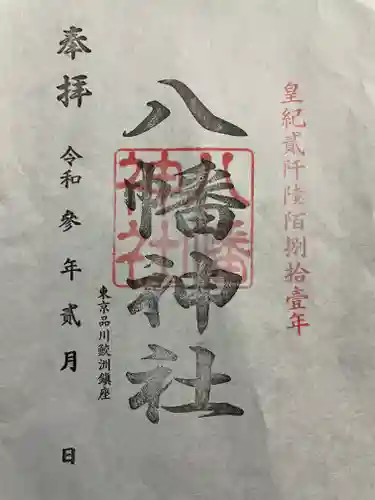 皇紀貳阡陸陌捌拾壹年
八幡神社
八幡神社
東京品川鮫洲鎮座
奉拝
令和参年貳月　日